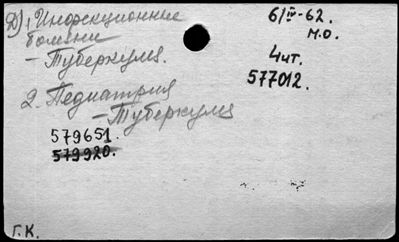 Д) 1. Инфекционные
болезни
- Туберкулез.
2. Педиатрия
- Туберкулез
579651.
579920.
6/IV-62.
м.о.
4чит.
577012.
Г.К.